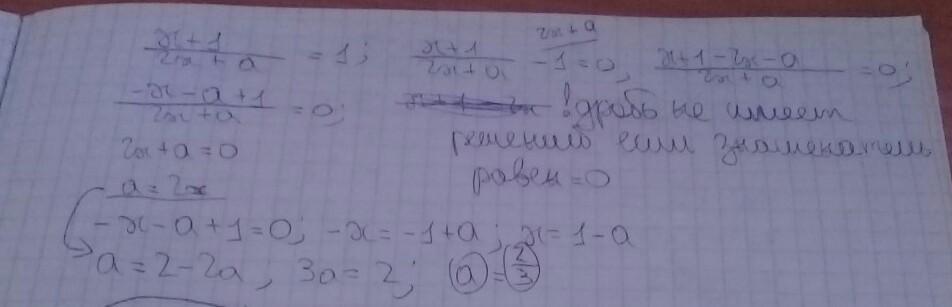 (x+1)/(2x+a) = 1; (x+1)/(2x+a) - 1 = 0, 2x+a (x+1-2x-a)/(2x+a) = 0;
(-x-a+1)/(2x+a) = 0; ! дробь не имеет
2x+a=0 решений если знаменатель
a=2x равен=0
-x-a+1=0; -x=-1+a; x=1-a
a=2-2a, 3a=2; a=2/3